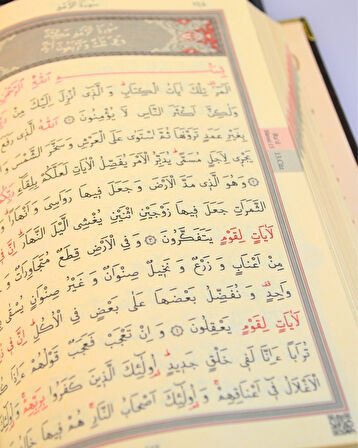 سُورَةُ الرَّعْدِ
اَللّٰهُ الرَّحْمٰنِ
الٓمٓرٰ تِلْكَ اٰيَاتُ الْكِتَابِ وَالَّذٓى اُنْزِلَ اِلَيْكَ مِنْ
وَلٰكِنَّ اَكْثَرَ النَّاسِ لَا يُؤْمِنُونَ ١ اَللّٰهُ الَّذٓى رَفَعَ
بِغَيْرِ عَمَدٍ تَرَوْنَهَا ثُمَّ اسْتَوٰى عَلَى الْعَرْشِ وَسَخَّرَ الشَّمْسَ
يَجْرٓى لِاَجَلٍ مُسَمًّى يُدَبِّرُ الْاَمْرَ يُفَصِّلُ الْاٰيَاتِ لَعَلَّكُمْ بِلِقَٓاءِ
٢ وَهُوَ الَّذٓى مَدَّ الْاَرْضَ وَجَعَلَ فٓيهَا رَوَاسِىَ وَاَنْهَارًا
الثَّمَرَاتِ جَعَلَ فٓيهَا زَوْجَيْنِ اثْنَيْنِ يُغْشِى الَّيْلَ النَّهَارَ اِنَّ فٓى
لَاٰيَاتٍ لِقَوْمٍ يَتَفَكَّرُونَ ٣ وَفِى الْاَرْضِ قِطَعٌ مُتَجَاوِرَاتٌ
مِنْ اَعْنَابٍ وَزَرْعٌ وَنَخٓيلٌ صِنْوَانٌ وَغَيْرُ صِنْوَانٍ يُسْقٰى
وَاحِدٍ وَنُفَضِّلُ بَعْضَهَا عَلٰى بَعْضٍ فِى الْاُكُلِ اِنَّ فٓى
لَاٰيَاتٍ لِقَوْمٍ يَعْقِلُونَ ٤ وَاِنْ تَعْجَبْ فَعَجَبٌ قَوْلُهُمْ ءَاِذَا
تُرَابًا ءَاِنَّا لَفٓى خَلْقٍ جَدٓيدٍ اُولٰٓئِكَ الَّذٓينَ كَفَرُوا بِرَبِّهِمْ وَاُولٰٓئِكَ
الْاَغْلَالُ فٓى اَعْنَاقِهِمْ وَاُولٰٓئِكَ اَصْحَابُ النَّارِ هُمْ فٓيهَا